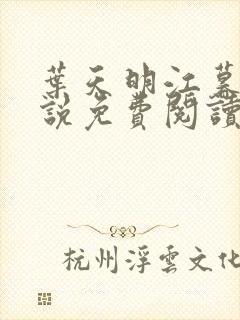 葉天明江暮
說免費閱讀
杭州浮雲文化